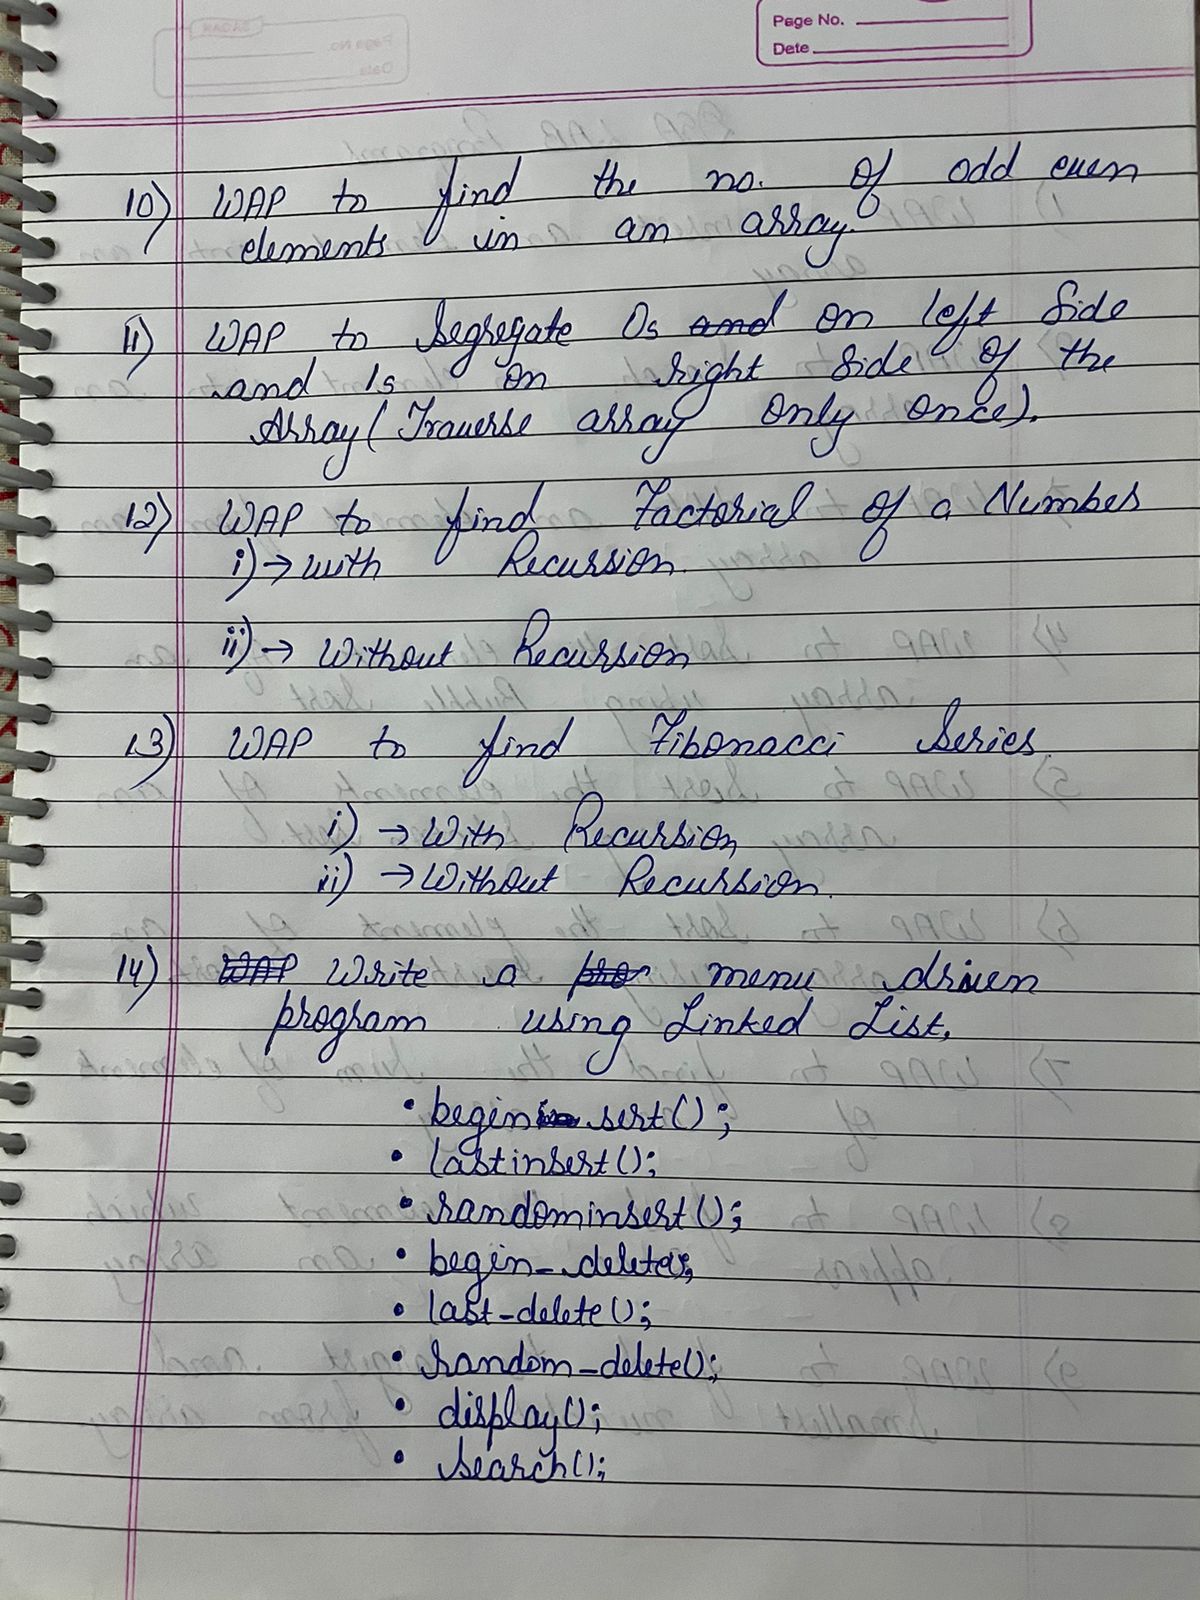 Page No.
Date
10) WAP to find the no. of odd even
elements in an array.
11) WAP to Segregate 0s and on left Side
and 1s on right Side of the
Array (Traverse array only once).
12) WAP to find Factorial of a Number
i) → with Recursion.
ii) → Without Recursion
13) WAP to find Fibonacci Series.
i) → With Recursion
ii) → Without Recursion.
14) WAP Write a pro menu driven
program using Linked List.
• begin sert();
• lastinsert();
• randominsert();
• begin_delete;
• last-delete();
• random_delete();
• display();
• Search();